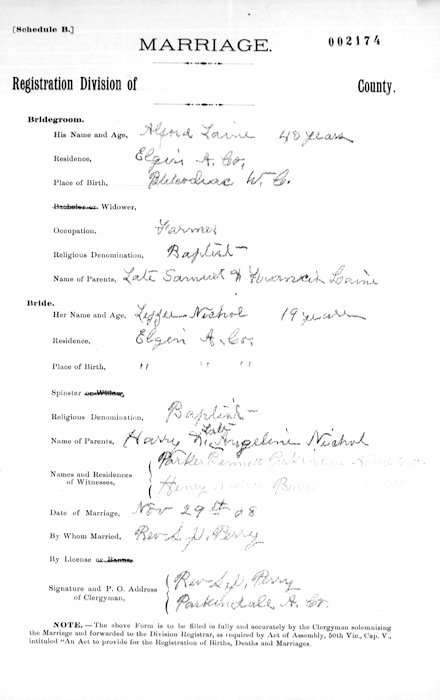 [Schedule B.]
MARRIAGE. 002174
Registration Division of County.
Bridegroom.
His Name and Age, Alford Laine 40 years
Residence, Elgin A. Co,
Place of Birth, W. C.
Bachelor or Widower,
Occupation. Farmer
Religious Denomination, Baptist
Name of Parents, Late Samuel & Laine
Bride.
Her Name and Age, Nichol 19 years
Residence, Elgin A. Co,
Place of Birth, " " "
Spinster or Widow,
Religious Denomination, Baptist
Late
Name of Parents, Harry & Angeline Nichol
Names and Residences of Witnesses, Parker
Henry
Date of Marriage, Nov 29th 08
By Whom Married, Rev S. D. Perry
By License or Banns
Signature and P. O. Address of Clergyman, Rev S. D. Perry
Parkindale A. Co.
NOTE.—The above Form is to be filled in fully and accurately by the Clergyman solemnizing
the Marriage and forwarded to the Division Registrar, as required by Act of Assembly, 50th Vic., Cap. V.,
intituled "An Act to provide for the Registration of Births, Deaths and Marriages.